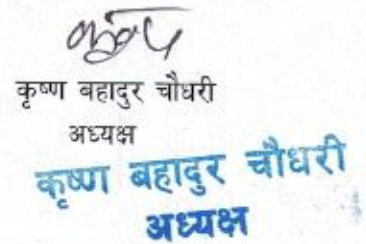 कृष्ण बहादुर चौधरी
अध्यक्ष
कृष्ण बहादुर चौधरी
अध्यक्ष